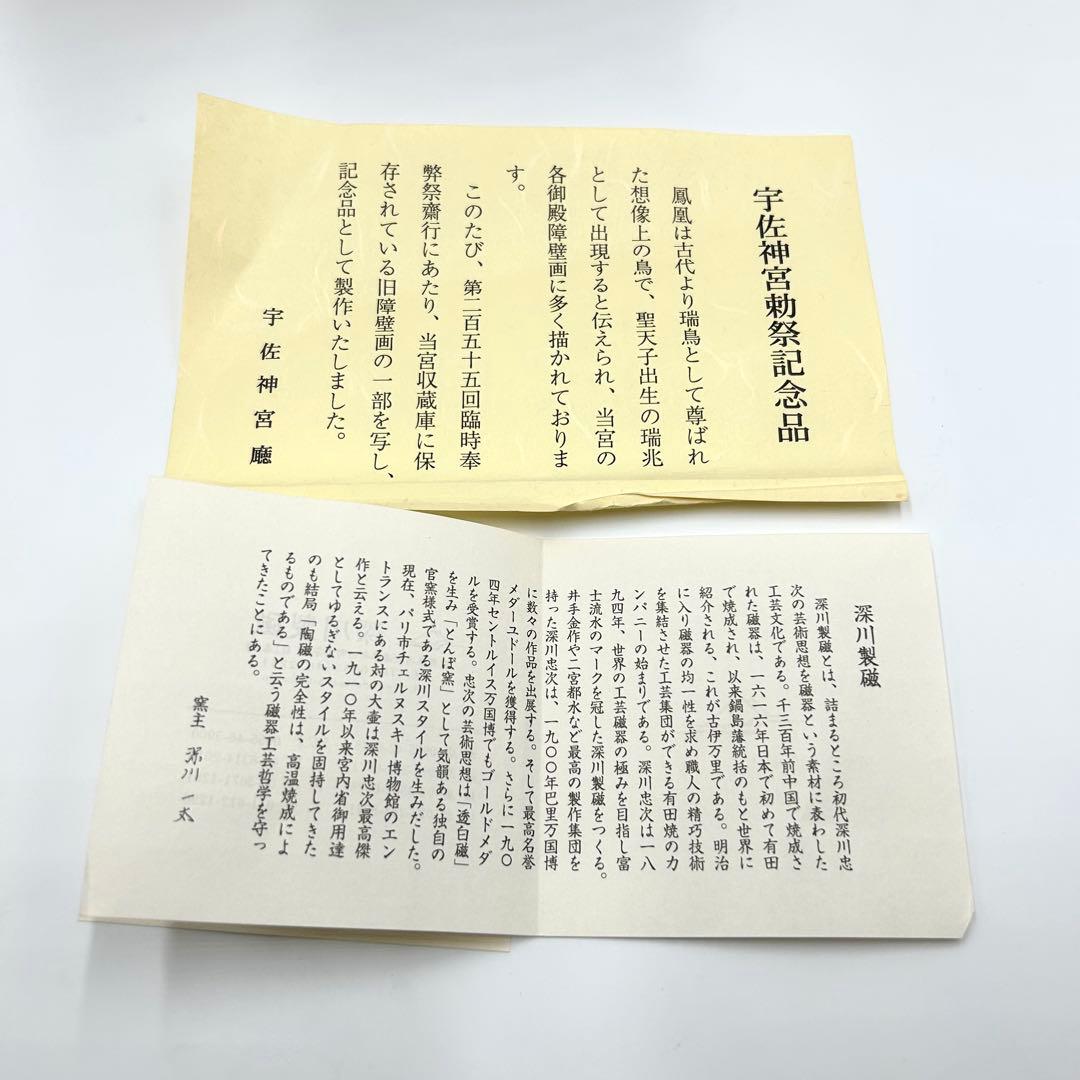 宇佐神宮勅祭記念品
鳳凰は古代より瑞鳥として尊ばれ
た想像上の鳥で、聖天子出生の瑞兆
として出現すると伝えられ、当宮の
各御殿障壁画に多く描かれておりま
す。
このたび、第二百五十五回臨時奉
弊祭齋行にあたり、当宮収蔵庫に保
存されている旧障壁画の一部を写し、
記念品として製作いたしました。
宇佐神宮廳
深川製磁
深川製磁とは、詰まるところ初代深川忠
次の芸術思想を磁器という素材に表わした
工芸文化である。千三百年前中国で焼成さ
れた磁器は、一六一六年日本で初めて有田
で焼成され、以来鍋島藩統括のもと世界に
紹介される、これが古伊万里である。明治
に入り磁器の均一性を求め職人の精巧技術
を集結させた工芸集団ができる有田焼の力
ンパニーの始まりである。深川忠次は一八
九四年、世界の工芸磁器の極みを目指し富
士流水のマークを冠した深川製磁をつくる。
井手金作や二宮都水など最高の製作集団を
持った深川忠次は、一九〇〇年巴里万国博
に数々の作品を出展する。そして最高名誉
メダーユドールを獲得する。さらに一九〇
四年セントルイス万国博でもゴールドメダ
ルを受賞する。忠次の芸術思想は「透白磁」
を生み「とんぼ窯」として気韻ある独自の
官窯様式である深川スタイルを生みだした。
現在、パリ市チェルヌスキー博物館のエン
トランスにある対の大壷は深川忠次最高傑
作と云える。一九一〇年以来宮内省御用達
としてゆるぎないスタイルを固持してきた
のも結局「陶磁の完全性は、高温焼成によ
るものである」と云う磁器工芸哲学を守っ
てきたことにある。
窯主 深川一太